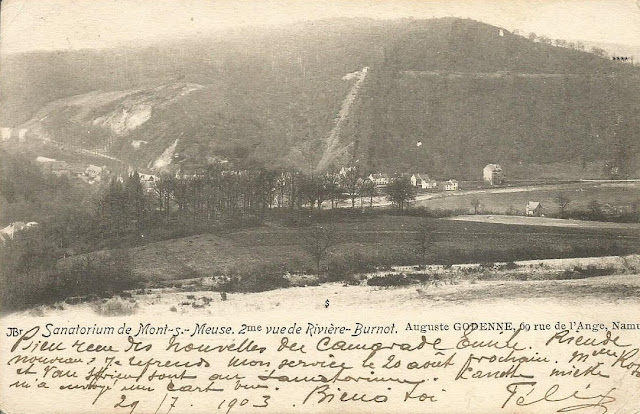 JBr Sanatorium de Mont-s.-Meuse. 2me vue de Rivière-Burnot. Auguste GODENNE, 69 rue de l'Ange, Namu
Bien reçu des nouvelles du camarade Emile. Rien de
nouveau, je reprends mon service le 20 août prochain.
et Van sont au Sanatorium.
m'a envoyé une carte Bien à toi Félix
29/7 1903